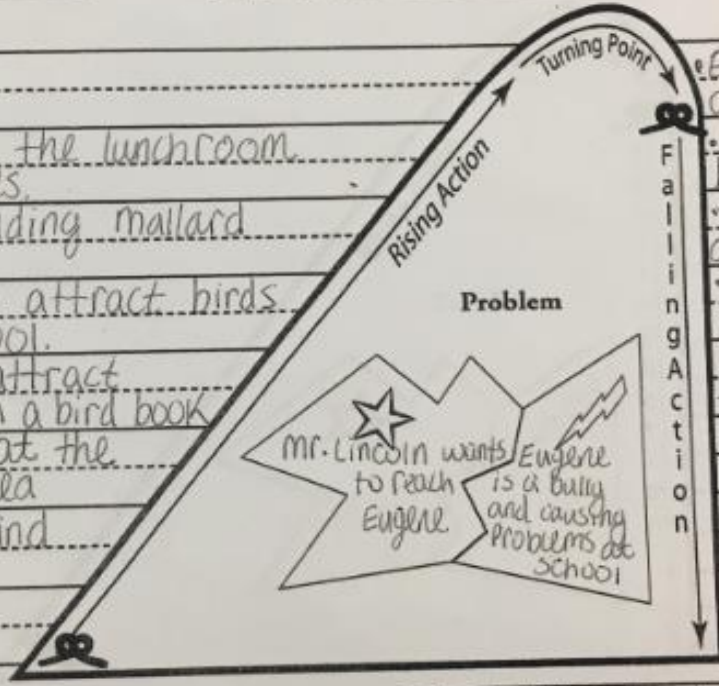 the lunchroom
mallard
attract birds
attract
a bird book
at the
Rising Action
Turning Point
Falling Action
Problem
Mr. Lincoln wants
to reach
Eugene
Eugene
is a bully
and causing
problems at
school